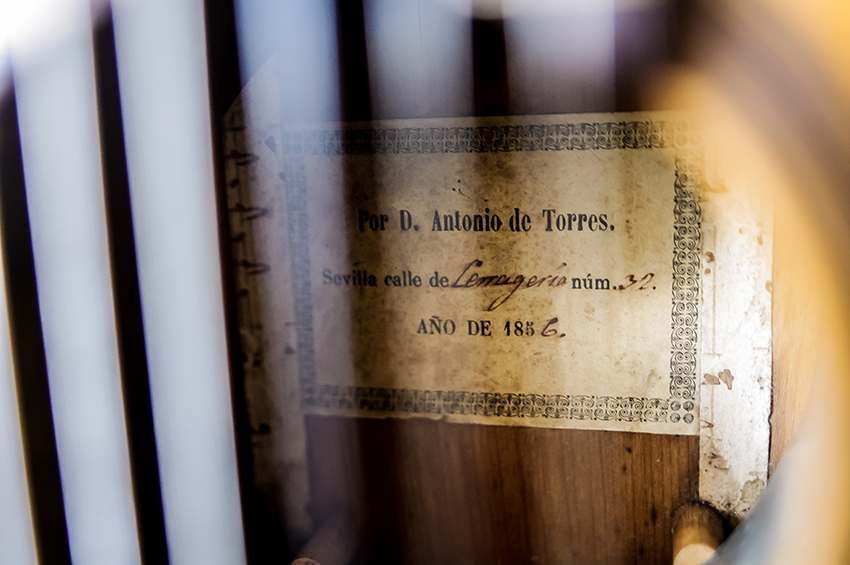 Por D. Antonio de Torres.
Sevilla calle de Cerragería núm. 32.
AÑO DE 1856.